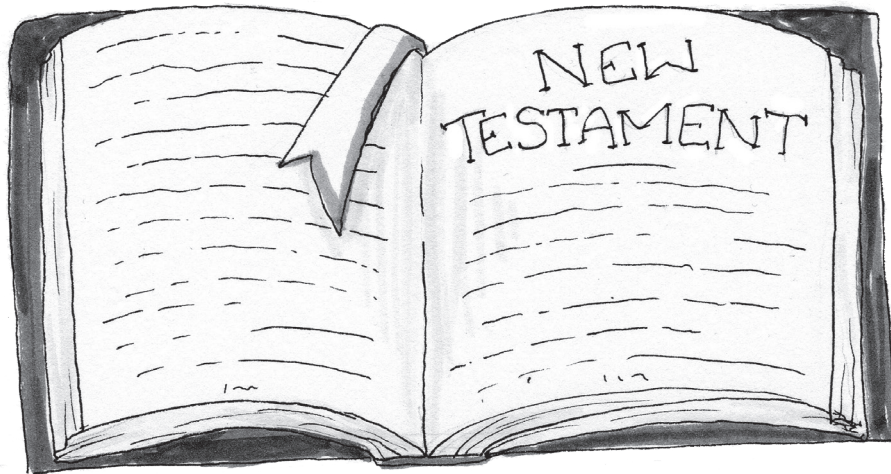 NEW
TESTAMENT